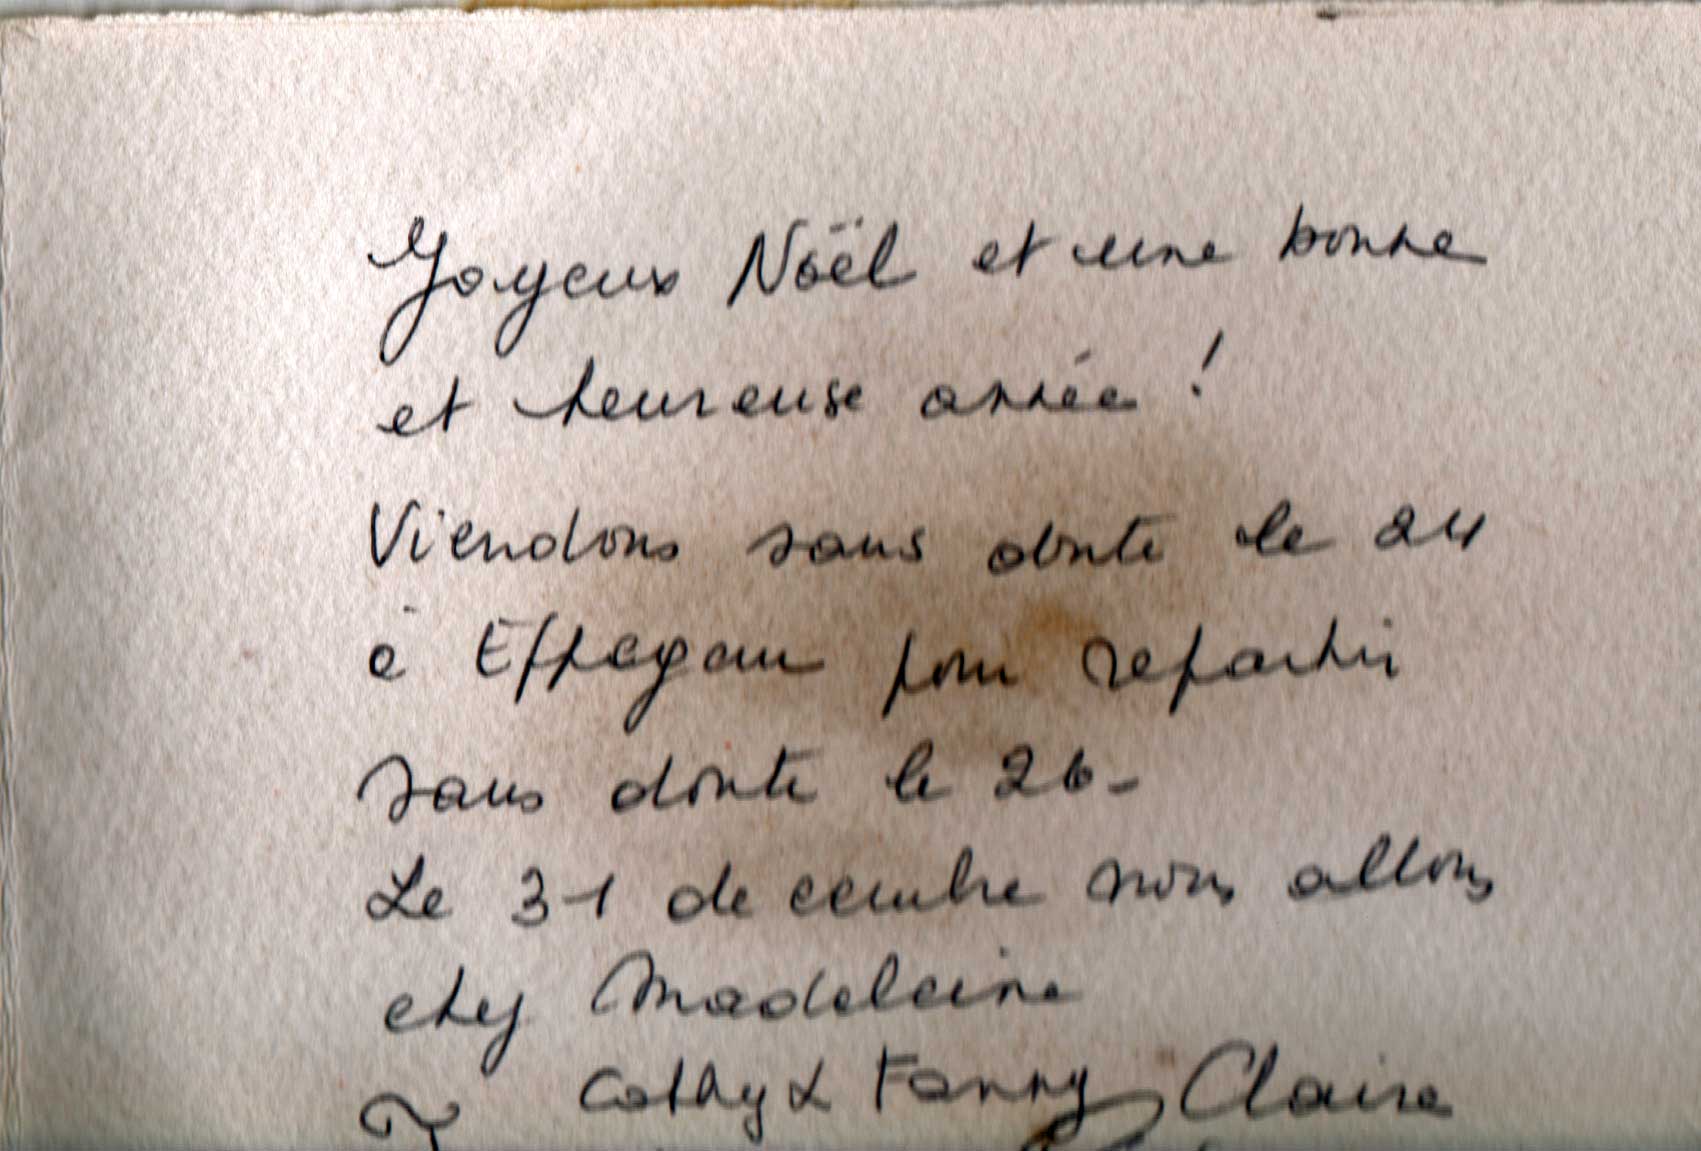 Joyeux Noël et une bonne
et heureuse année !
Viendons sans doute le 24
à pour repartir
sans doute le 26-
Le 31 decembre nous allons
chez Madeleine
Cathy & Fanny Claire